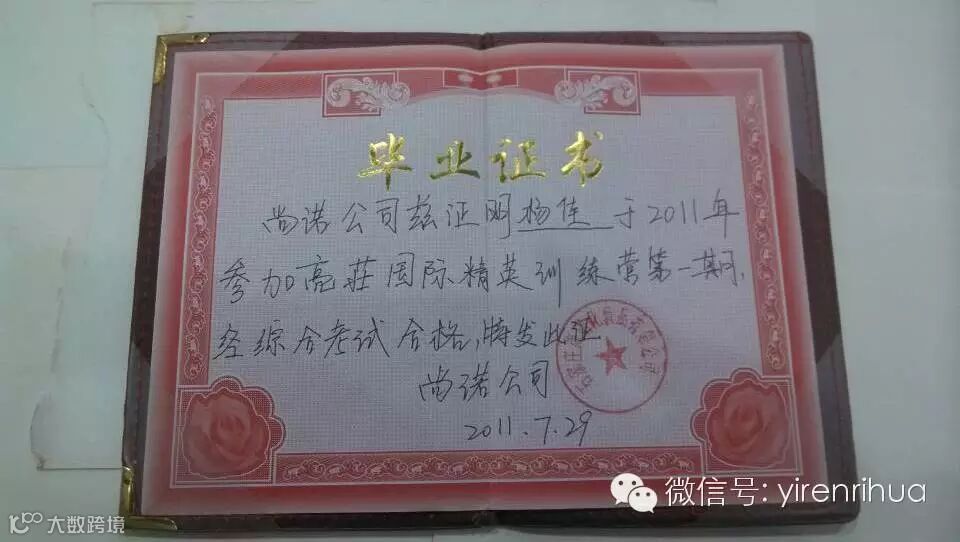 毕业证书
尚诺公司兹证明杨佳于2011年
参加亮莊国际精英训练营第一期,
经综合考试合格,特发此证
尚诺公司
2011.7.29
微信号: yirenrihua
大数跨境